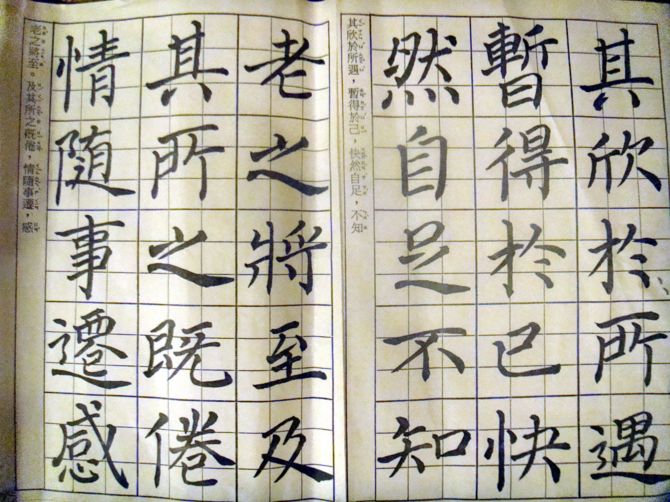 其欣於所遇
暫得於己快
然自足不知
其欣於所遇，暫得於己，快然自足，不知
老之將至及
其所之既倦
情隨事遷感
老之將至。及其所之既倦，情隨事遷，感